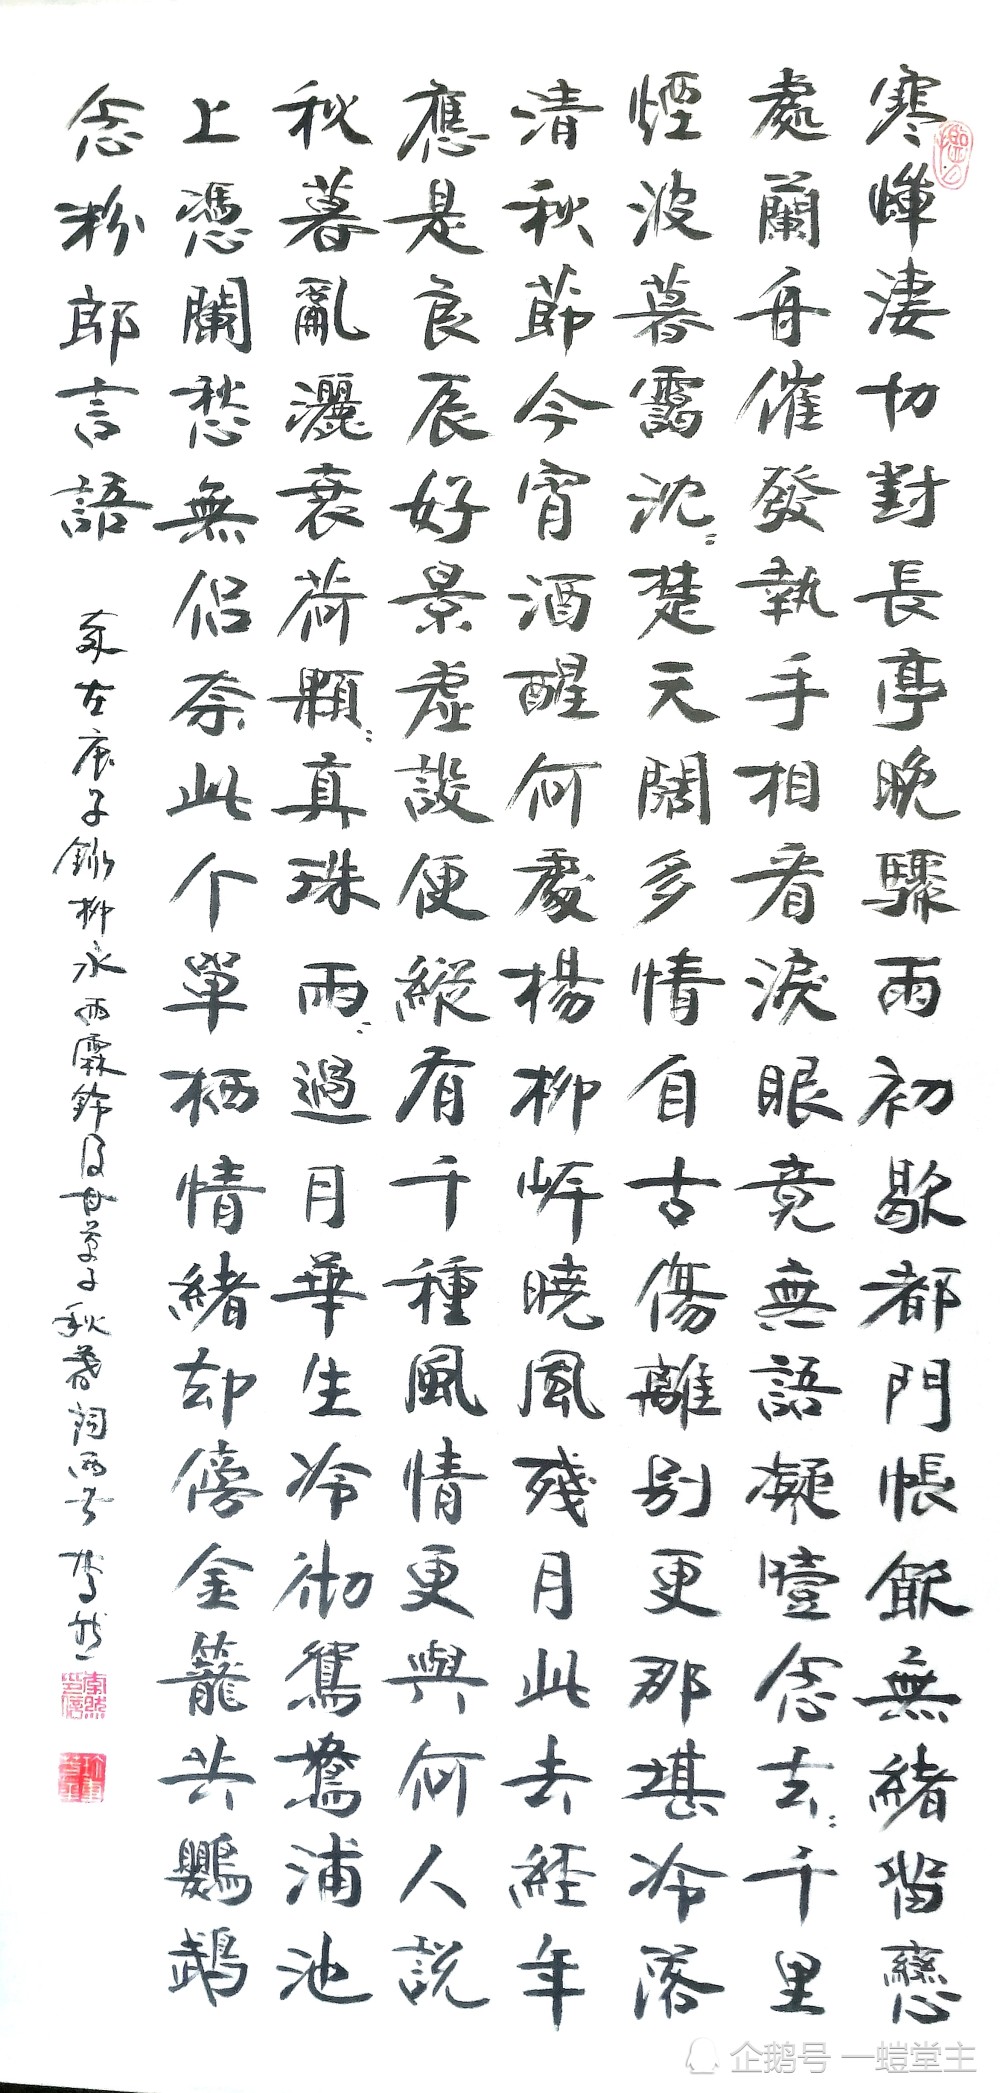 寒蟬淒切對長亭晚驟雨初歇都門帳飲無緒留戀
處蘭舟催發執手相看淚眼竟無語凝噎念去〻千里
煙波暮靄沈〻楚天闊多情自古傷離別更那堪冷落
清秋節今宵酒醒何處楊柳岍曉風殘月此去經年
應是良辰好景虛設便縱有千種風情更與何人說
秋暮亂灑衰荷顆〻真珠雨〻過月華生冷徹鴛鴦浦池
上憑闌愁無侶奈此个單栖情緒却傍金籠共鸚鵡
念粉郎言語
歲在庚子錄柳永雨霖鈴及甘草子秋暮詞兩首
企鹅号 一螘堂主